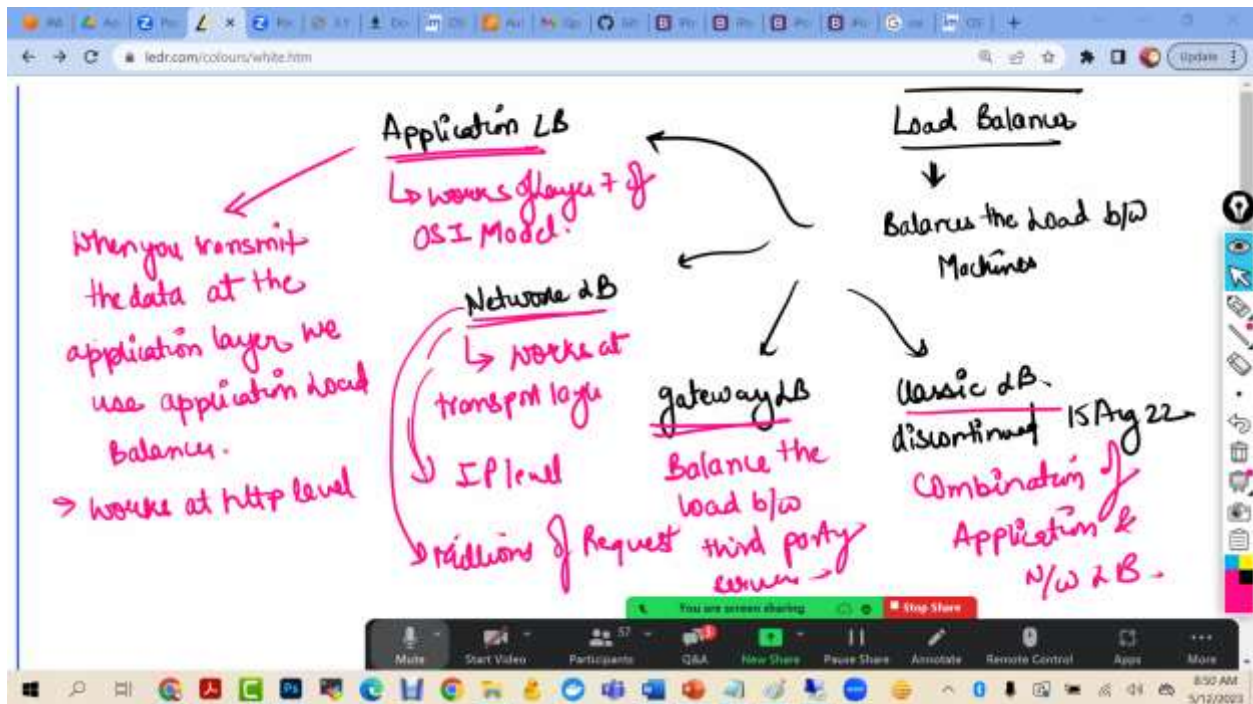 ledr.com/colours/white.htm
Update
Load Balancer
Balances the Load b/w
Machines
Application LB
↳ works of layer 7 of
OSI Model.
When you transmit
the data at the
application layer, we
use application Load
Balancer.
> works at http level
Network LB
↳ works at
transport layer
IP level
Millions of Request
gateway LB
Balance the
Load b/w
third party
server
Classic LB.
discontinued 15 Aug 22
Combination of
Application &
N/w LB.
You are screen sharing
Stop Share
Mute
Start Video
Participants
57
Q&A
New Share
Pause Share
Annotate
Remote Control
Apps
More
8:50 AM
5/12/2023